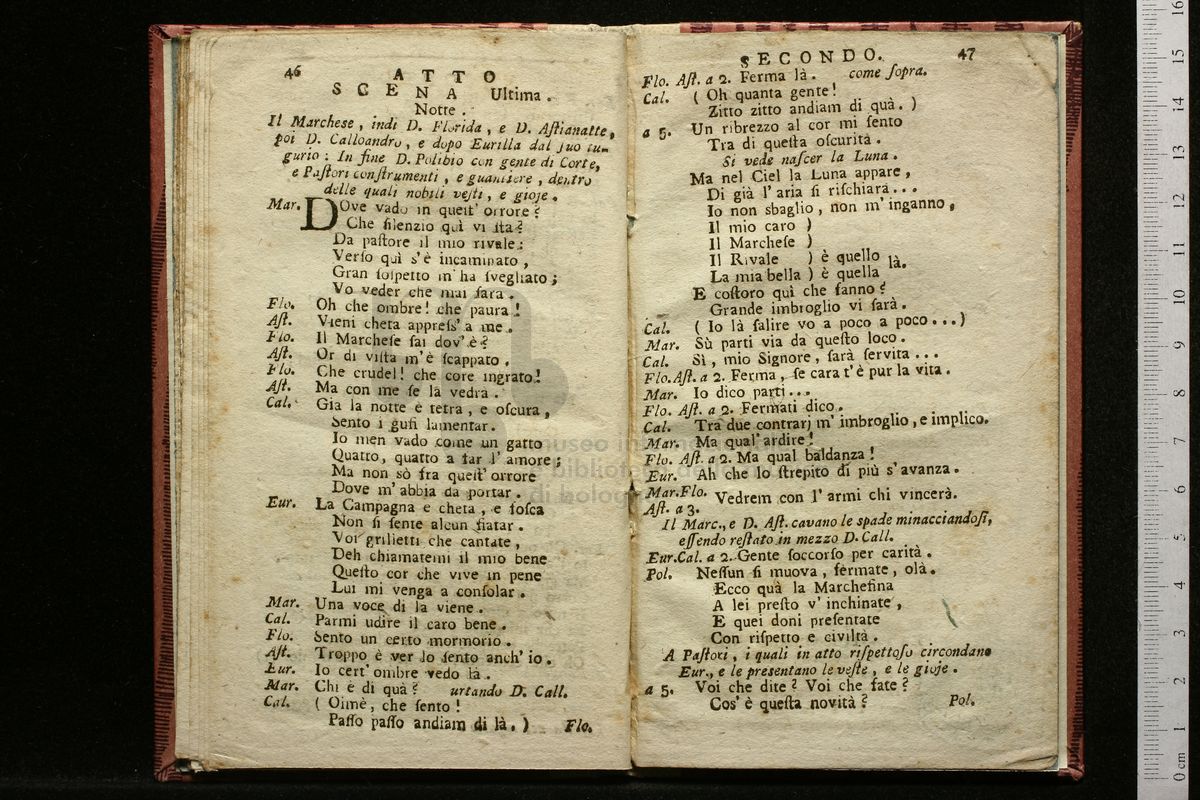 46
ATTO
SCENA Ultima.
Notte.
Il Marchese, indi D. Florida, e D. Aſtianatte,
poi D. Calloandro, e dopo Eurilla dal ſuo tu-
gurio: In fine D. Polibio con gente di Corte,
e Paſtori conſtrumenti, e guantiere, dentro
delle quali nobili veſti, e gioje.
Mar. DOve vado in queſt' orrore?
Che ſilenzio quì vi ſta?
Da paſtore il mio rivale:
Verſo quì s'è incaminato,
Gran ſoſpetto m'ha ſvegliato;
Vo veder che mai ſarà.
Flo. Oh che ombre! che paura!
Aſt. Vieni cheta appreſs' a me.
Flo. Il Marcheſe ſai dov'è?
Aſt. Or di viſta m'è ſcappato.
Flo. Che crudel! che core ingrato!
Aſt. Ma con me ſe la vedrà.
Cal. Già la notte è tetra, e oſcura,
Sento i gufi lamentar.
Io men vado come un gatto
Quatto, quatto a far l'amore;
Ma non sò fra queſt' orrore
Dove m'abbia da portar.
Eur. La Campagna e cheta, e foſca
Non ſi ſente alcun fiatar.
Voi grilletti che cantate,
Deh chiamatemi il mio bene
Queſto cor che vive in pene
Lui mi venga a conſolar.
Mar. Una voce di la viene.
Cal. Parmi udire il caro bene.
Flo. Sento un certo mormorio.
Aſt. Troppo è ver lo ſento anch' io.
Eur. Io cert' ombre vedo là.
Mar. Chi è di quà? urtando D. Call.
Cal. (Oimè, che ſento!
Paſſo paſſo andiam di là.) Flo.
SECONDO. 47
Flo. Aſt. a 2. Ferma là. come ſopra.
Cal. (Oh quanta gente!
Zitto zitto andiam di quà.)
a 5. Un ribrezzo al cor mi ſento
Tra di queſta oſcurità.
Si vede naſcer la Luna.
Ma nel Ciel la Luna appare,
Di già l'aria ſi riſchiara...
Io non sbaglio, non m'inganno,
Il mio caro )
Il Marcheſe )
Il Rivale ) è quello là.
La mia bella ) è quella
E coſtoro quì che fanno?
Grande imbroglio vi ſarà.
Cal. (Io là ſalire vo a poco a poco...)
Mar. Sù parti via da queſto loco.
Cal. Sì, mio Signore, ſarà ſervita...
Flo. Aſt. a 2. Ferma, ſe cara t'è pur la vita.
Mar. Io dico parti...
Flo. Aſt. a 2. Fermati dico.
Cal. Tra due contrarj m'imbroglio, e implico.
Mar. Ma qual'ardire!
Flo. Aſt. a 2. Ma qual baldanza!
Eur. Ah che lo ſtrepito di più s'avanza.
Mar. Flo.
Aſt. a 3. Vedrem con l'armi chi vincerà.
Il Marc., e D. Aſt. cavano le spade minacciandoſi,
eſſendo reſtato in mezzo D. Call.
Eur. Cal. a 2. Gente ſoccorſo per carità.
Pol. Neſſun ſi muova, fermate, olà.
Ecco quà la Marcheſina
A lei preſto v'inchinate,
E quei doni preſentate
Con riſpetto e civiltà.
A Paſtori, i quali in atto riſpettoſo circondano
Eur., e le presentano le veſte, e le gioje.
a 5. Voi che dite? Voi che fate?
Cos' è queſta novità? Pol.
museo in
e biblioteca
di bologna
0 cm 1 2 3 4 5 6 7 8 9 10 11 12 13 14 15 16